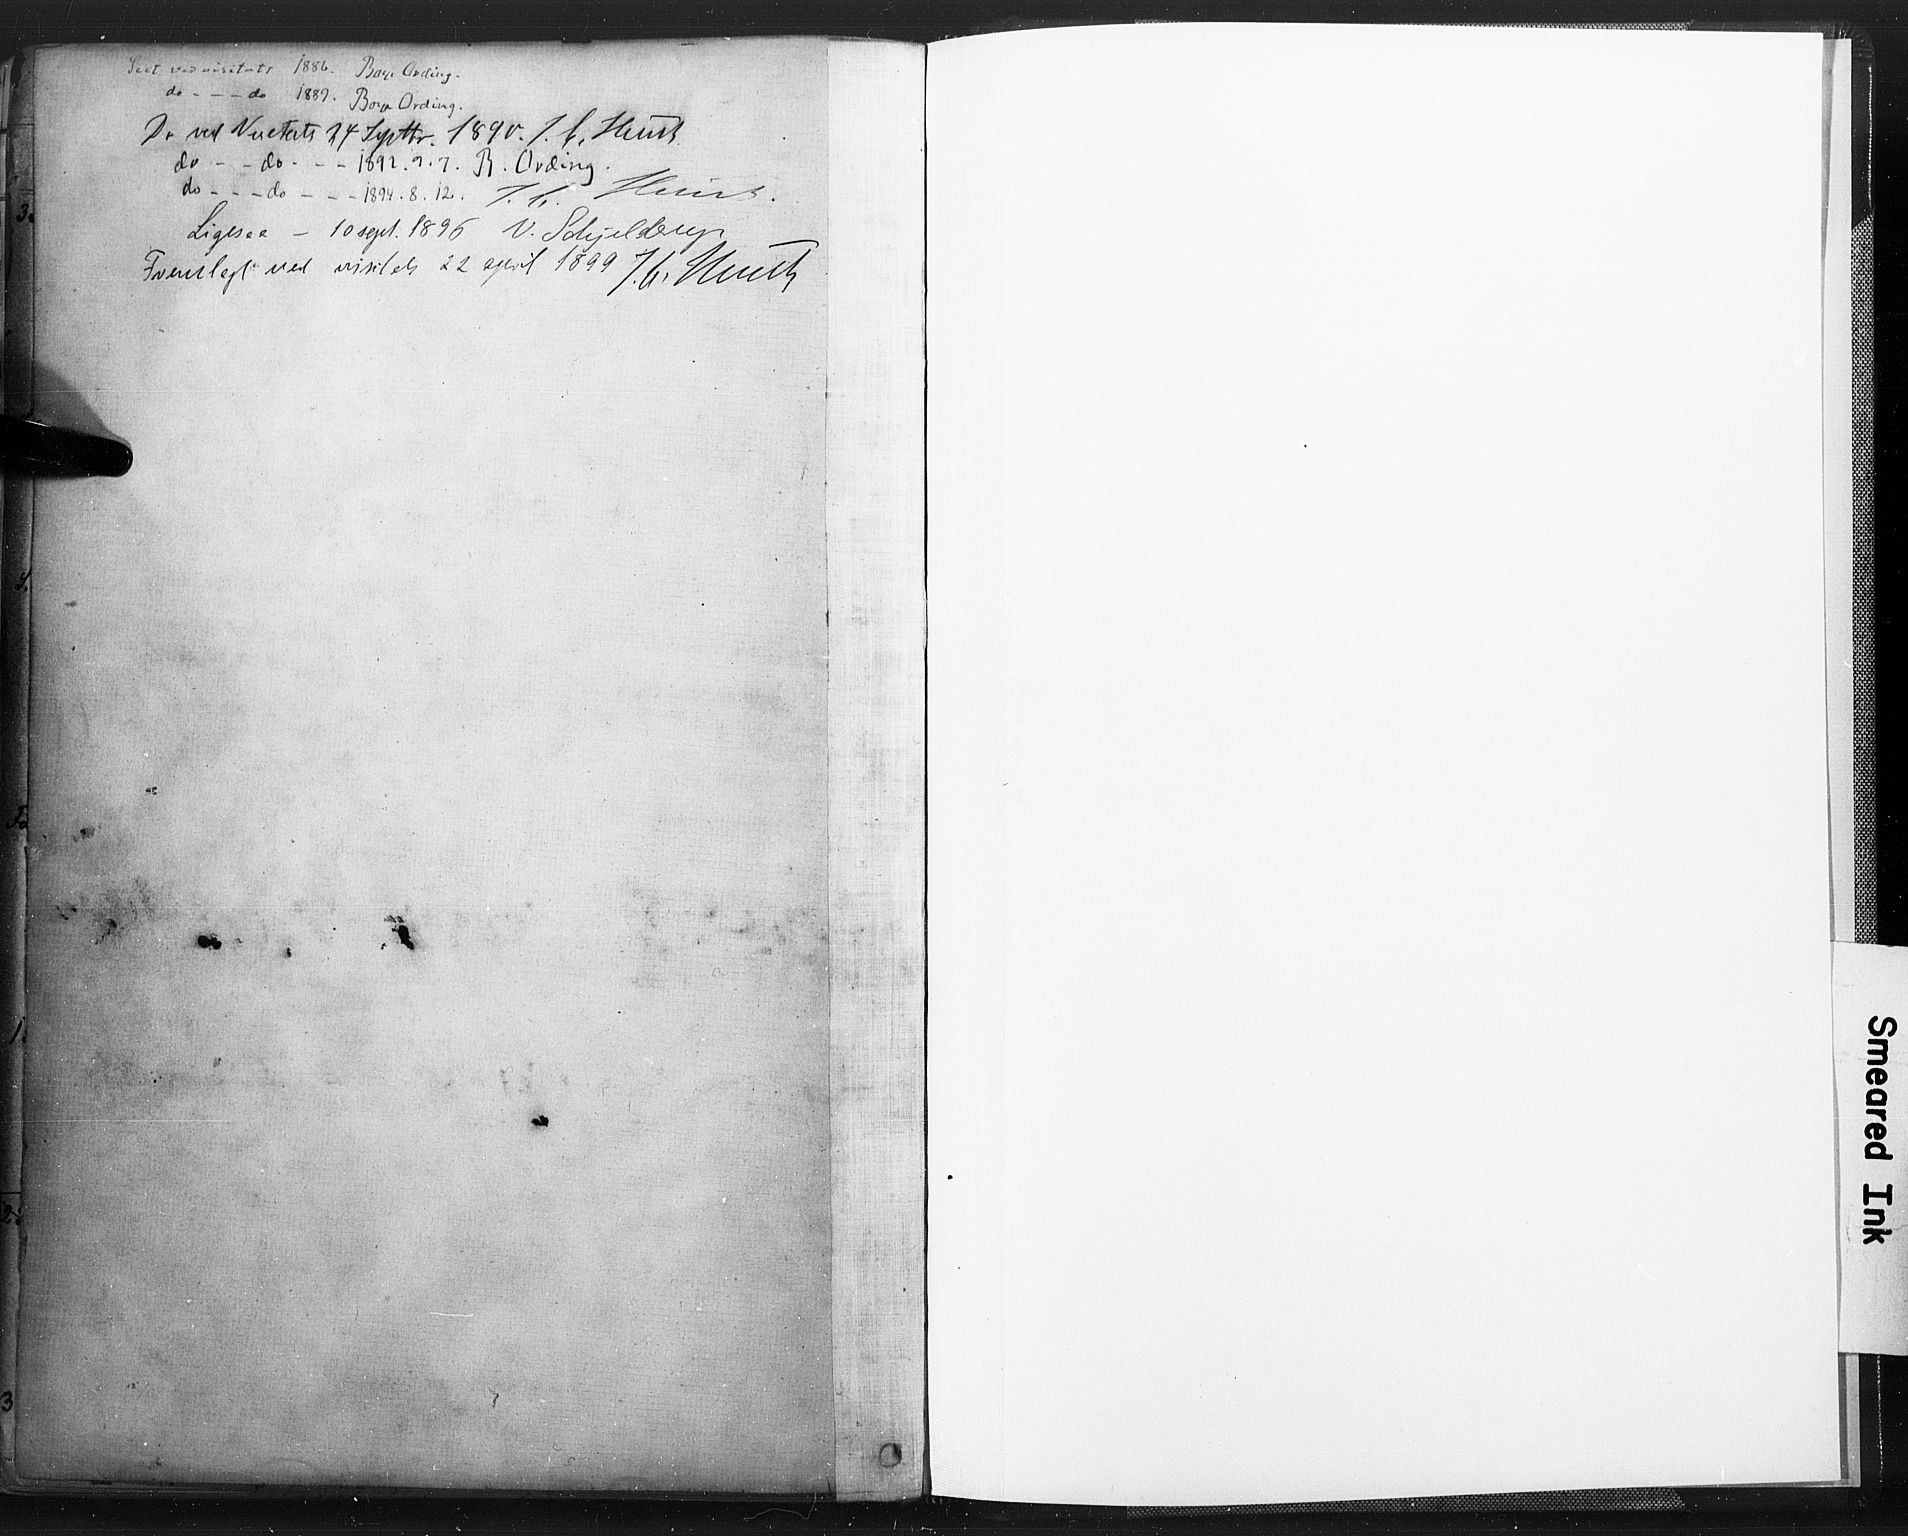 Seet ved visitats 1886. Boye Ording.
do - - - do 1889. Boye Ording.
Do ved Visitats 24 Septbr. 1890. J. C. Heuch
do - - do - - - 1892.9.7. B. Ording.
do - - - do - - - 1894.8.12. J. C. Heuch.
Ligesaa - 10 sept. 1896 V. Schjelderup
Fremlagt ved visitats 22 april 1899 J. C. Heuch
3.
4.
5.
1.
2.
3
Smeared Ink